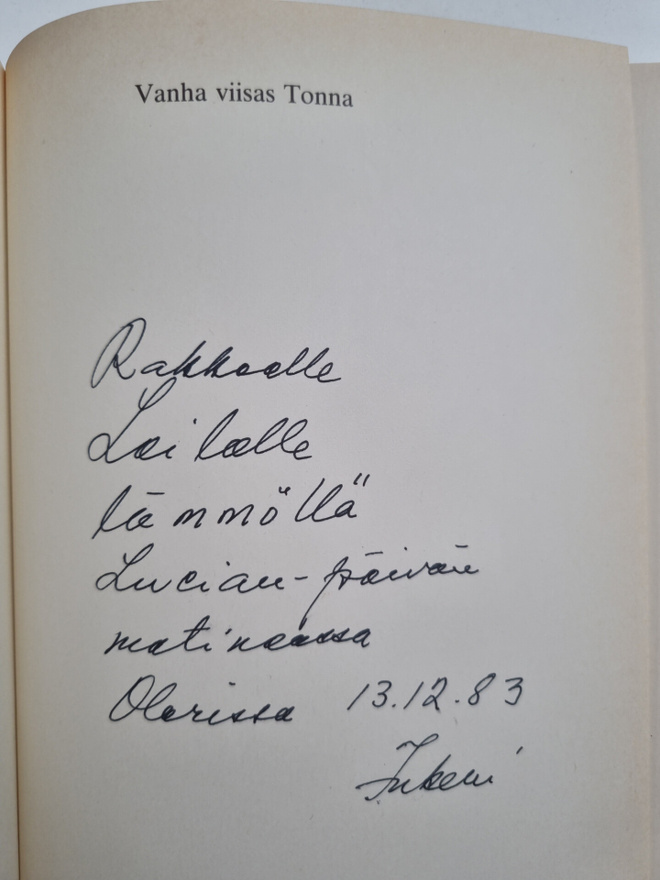 Vanha viisas Tonna
Rakkaalle
Lailalle
lämmöllä
Lucian-päivän
matineassa
Olarissa 13.12.83
Inkeri